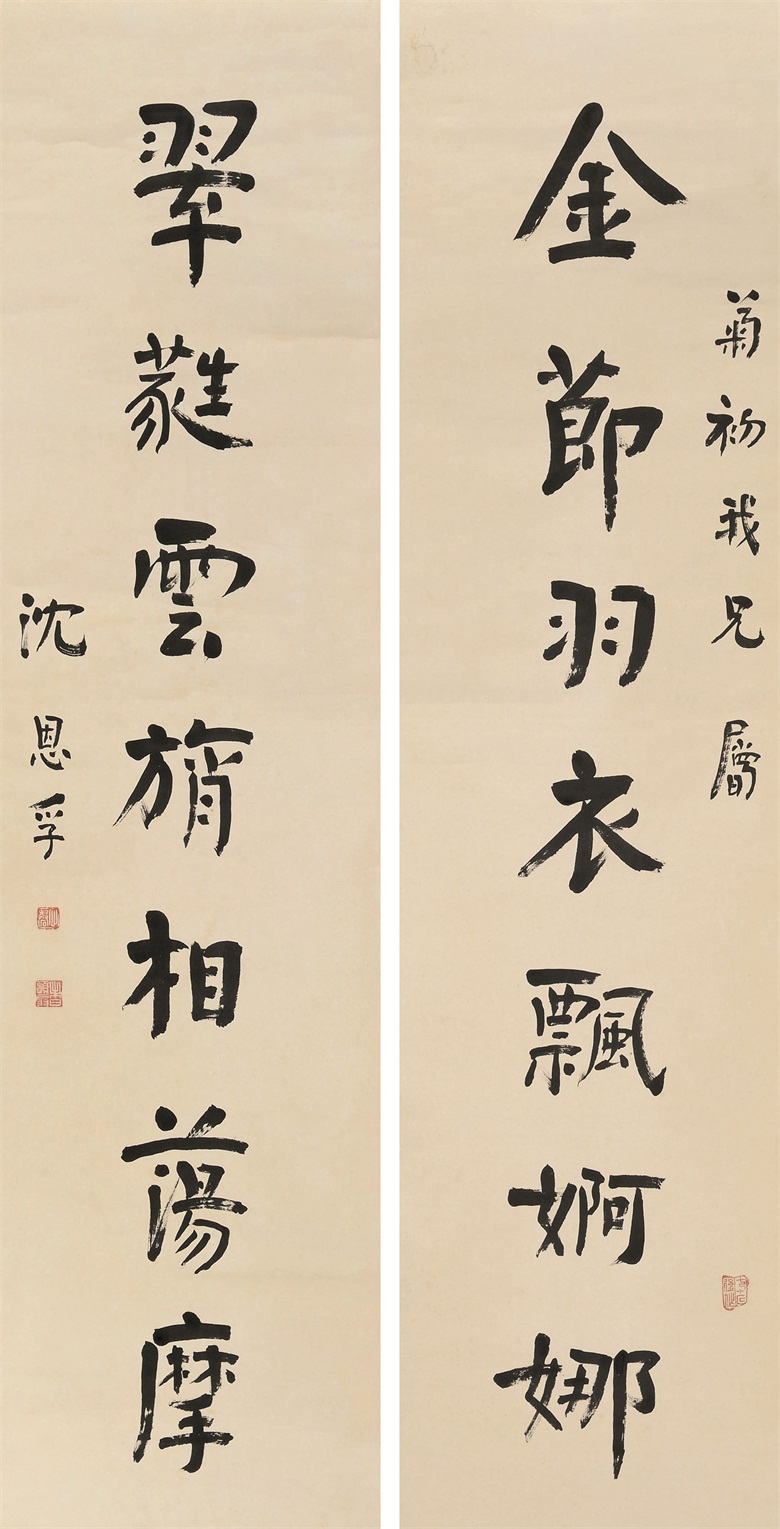 菊初我兄屬
金節羽衣飄婀娜
翠蕤雲旓相蕩摩
沈恩孚